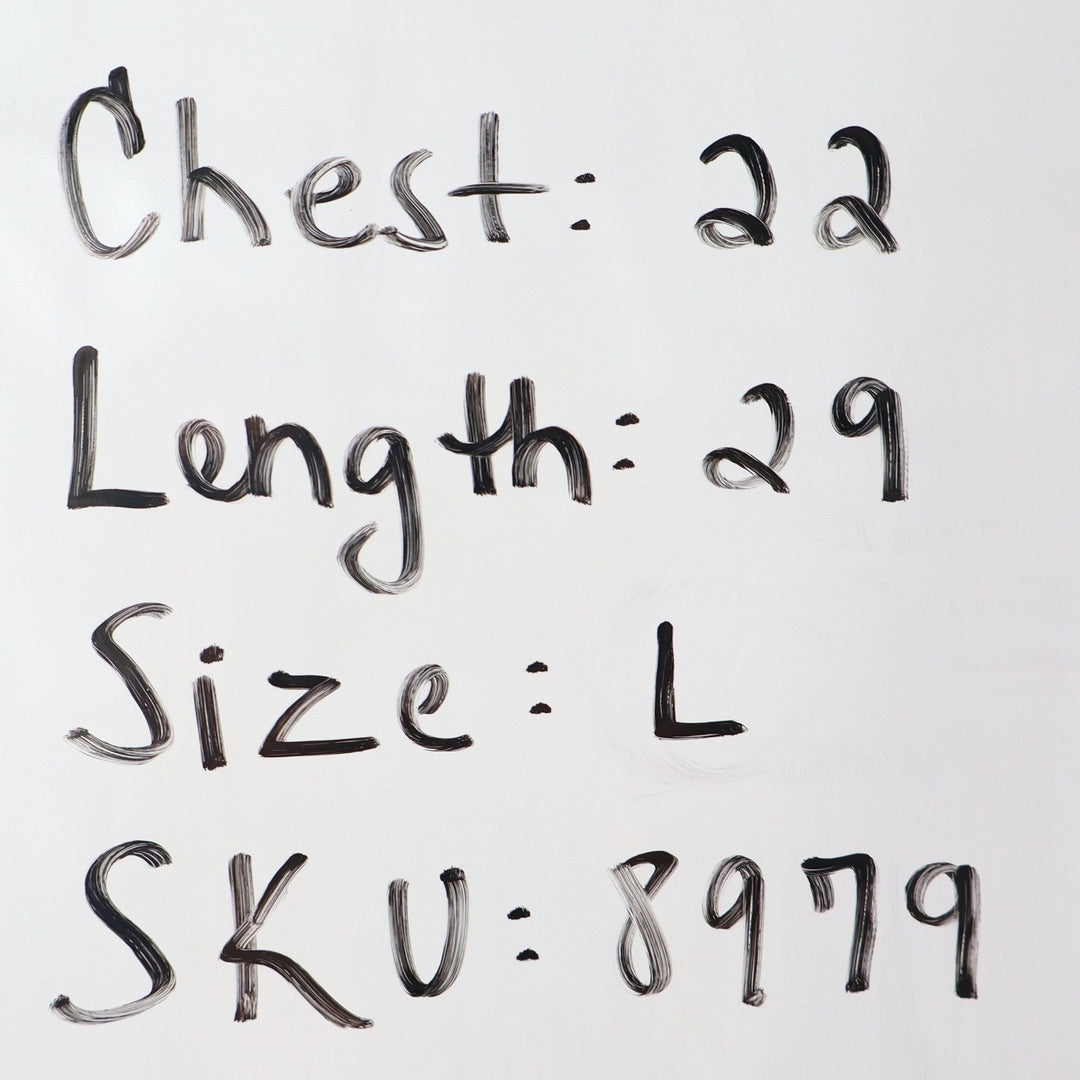 Chest: 22
Length: 29
Size: L
SKU: 8979